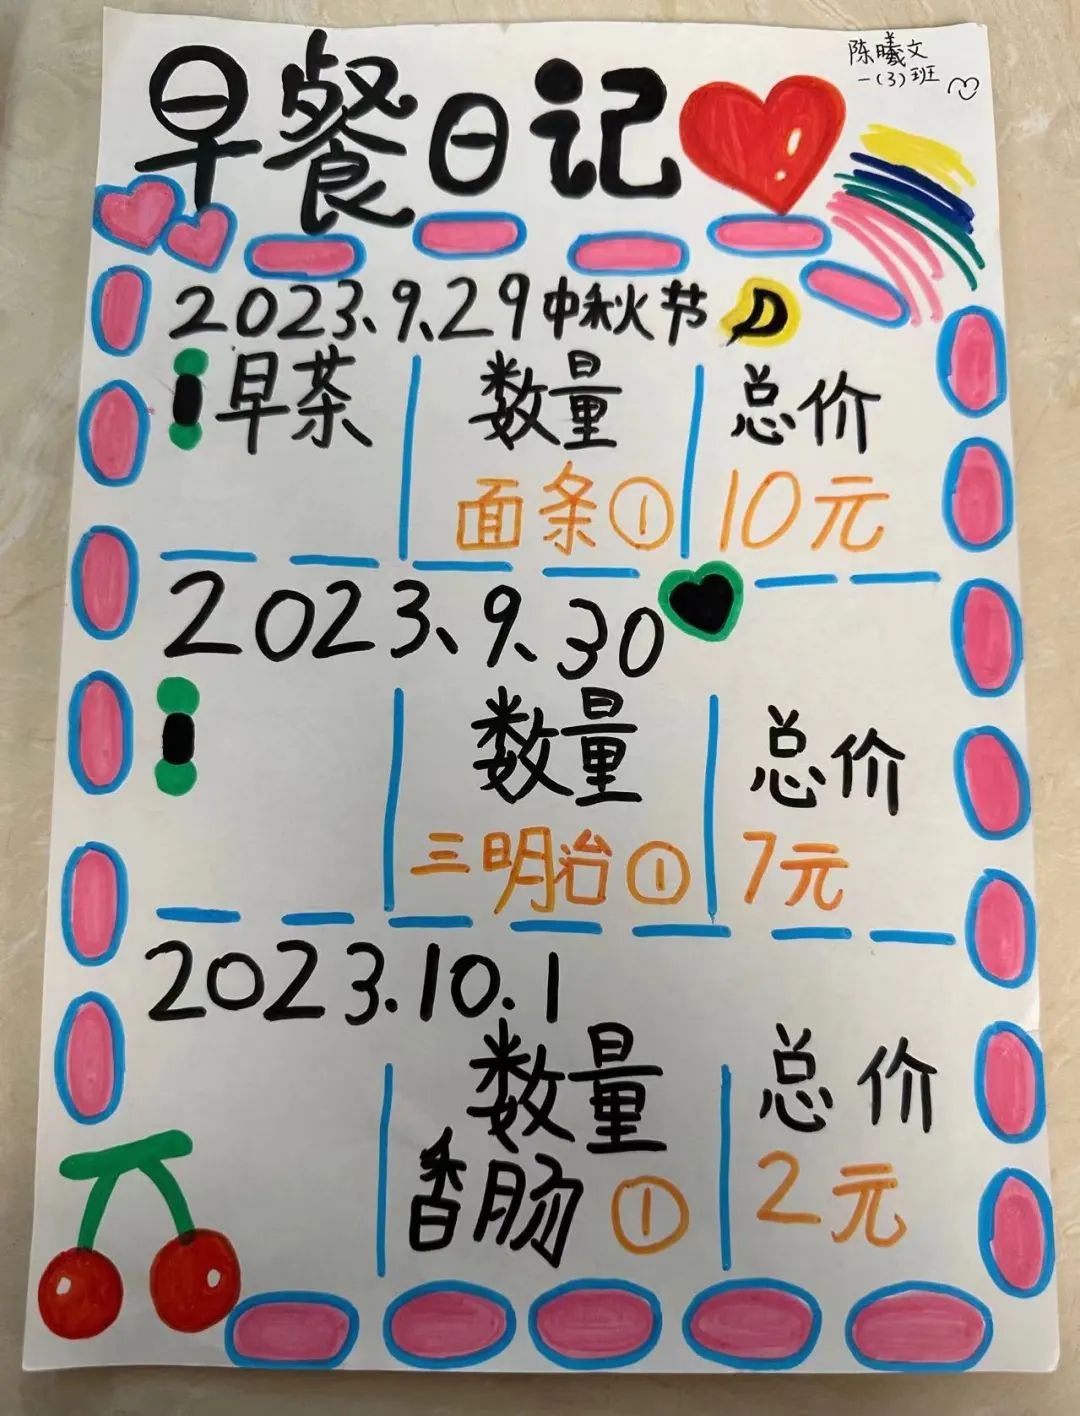 早餐日记
陈曦文
一(3)班
2023、9、29中秋节
早茶 数量 总价
面条① 10元
2023、9、30
数量 总价
三明治① 7元
2023.10.1
数量 总价
香肠① 2元